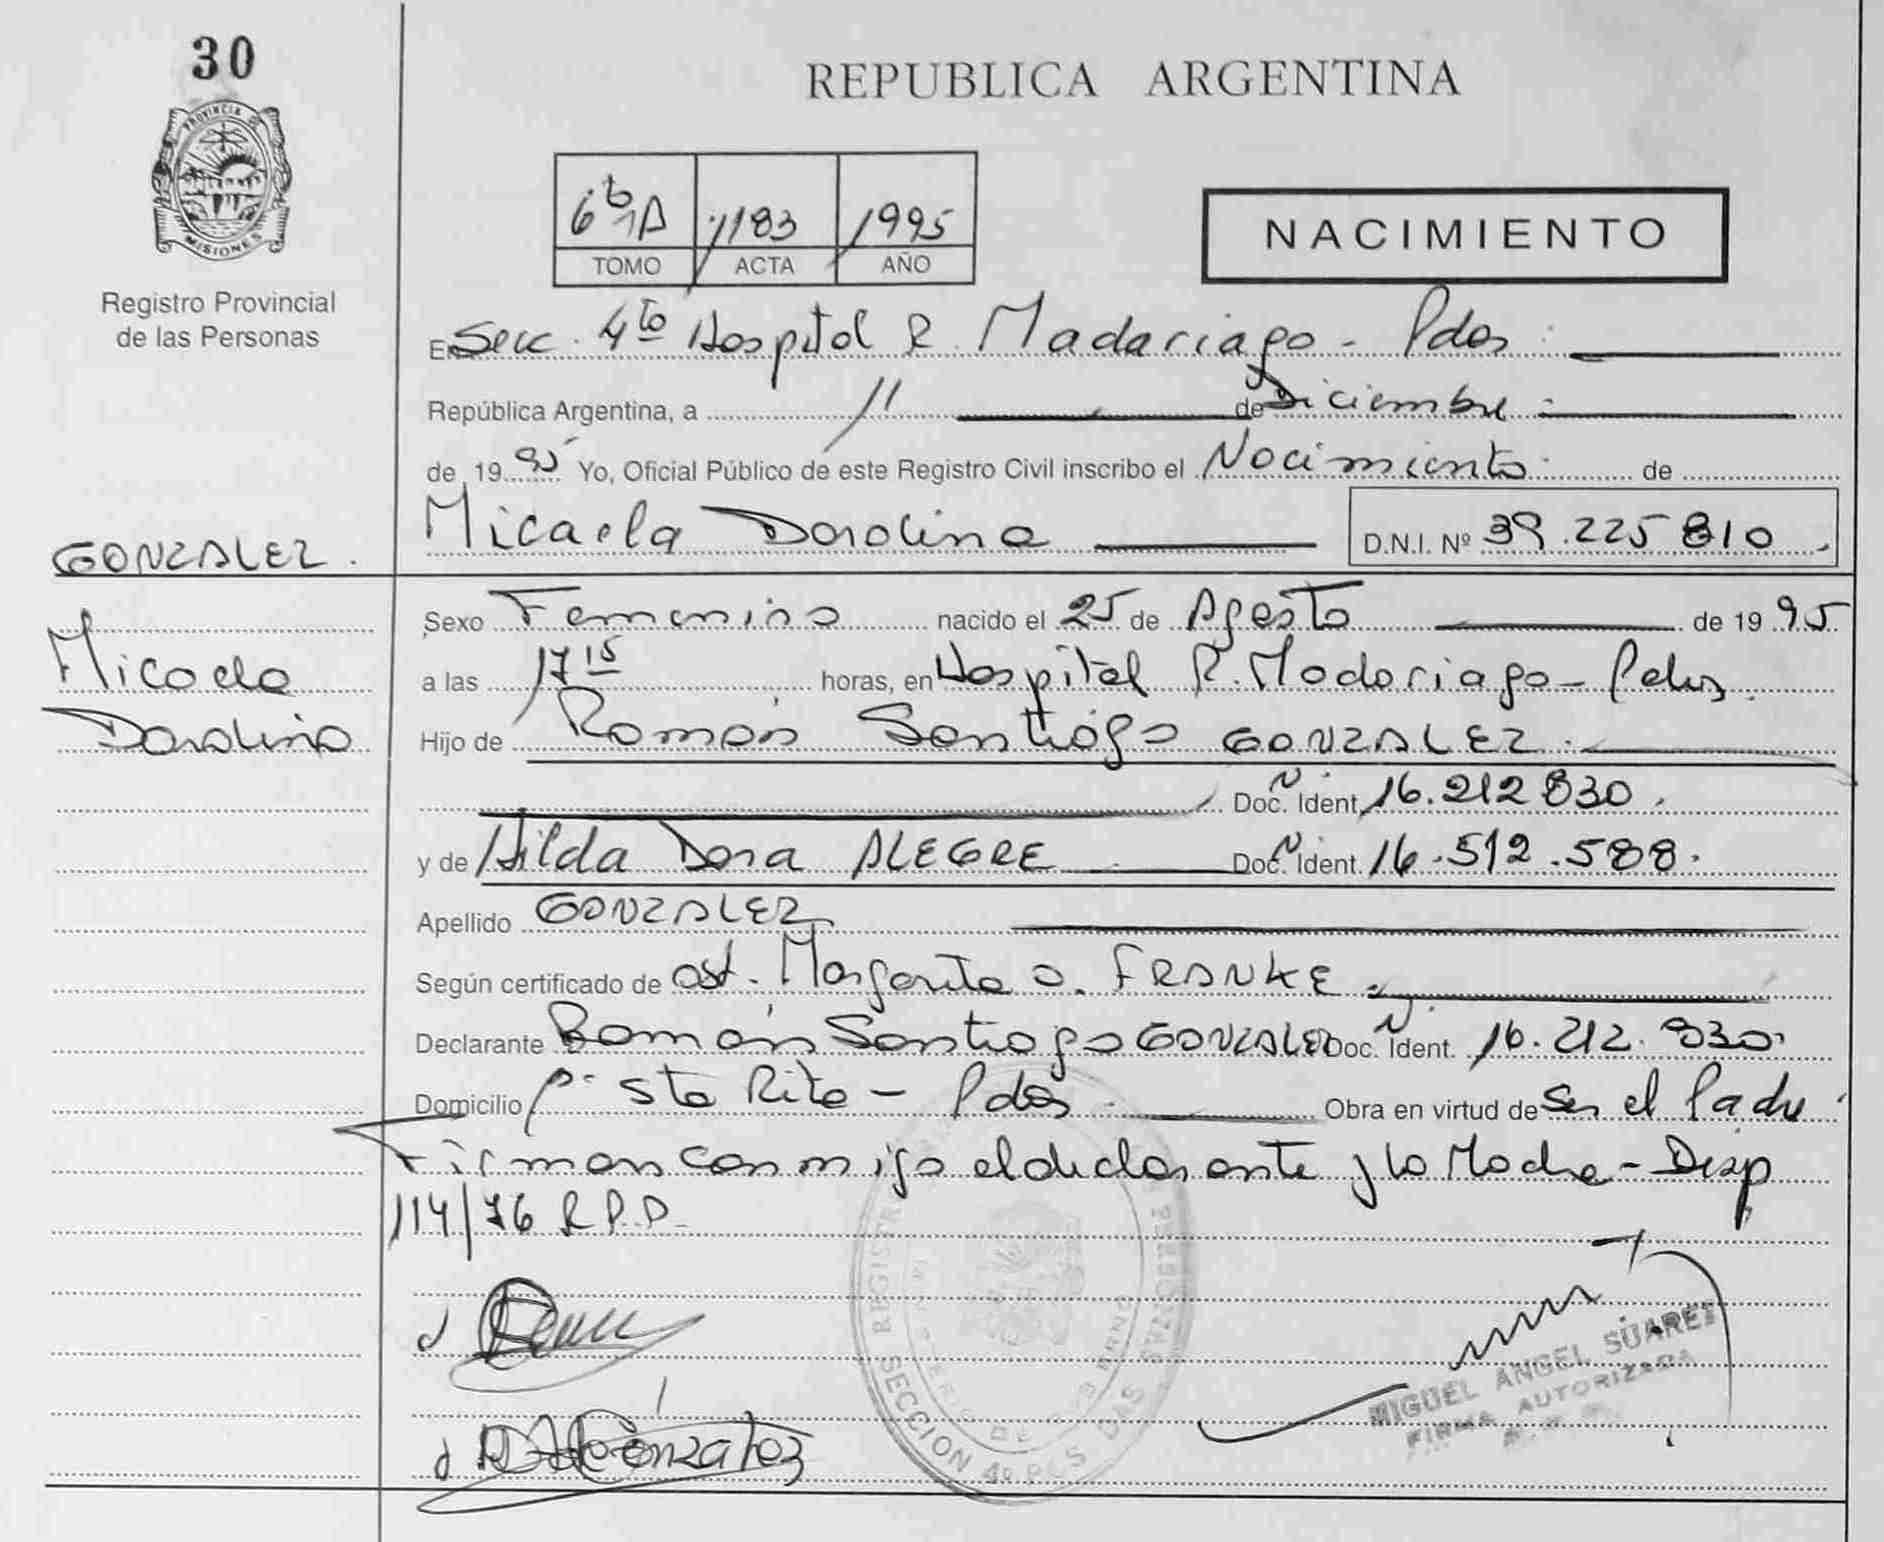 30
PROVINCIA DE
MISIONES
Registro Provincial
de las Personas
REPUBLICA ARGENTINA
1183 1995
TOMO ACTA AÑO
NACIMIENTO
En Secc. 4to Hospital R. Madariaga - Pdas
República Argentina, a 11 de Diciembre
de 1995 Yo, Oficial Público de este Registro Civil inscribo el Nacimiento de
Micaela Darolina D.N.I. Nº 39.225 810
GONZALEZ.
Sexo Femenino nacido el 25 de Agosto de 1995
Micaela
a las 17 15 horas, en Hospital R. Madariaga - Pdas.
Darolina
Hijo de Román Santiago GONZALEZ.
Doc. Ident. 16.212 830.
y de Hilda Dora ALEGRE Doc. Ident. 16.512.588.
Apellido GONZALEZ
Según certificado de ost. Margarita O. FRANKE
Declarante Román Santiago GONZALEZ Doc. Ident. 16.212.830.
Domicilio Bº Sta Rita - Pdas. Obra en virtud de Ser el Padre
Firman conmigo el declarante y la Madre - Disp
114/76 R.P.P.
REGISTRO PERSONAS
MINISTERIO DE GOBIERNO
SECCION 4º POSADAS
Gonzalez
MIGUEL ANGEL SUAREZ
FIRMA AUTORIZADA